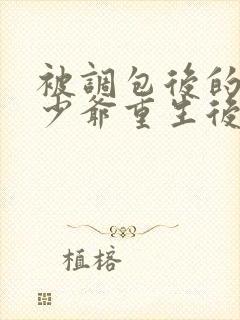 被調包後的
少爺重生後
植楁